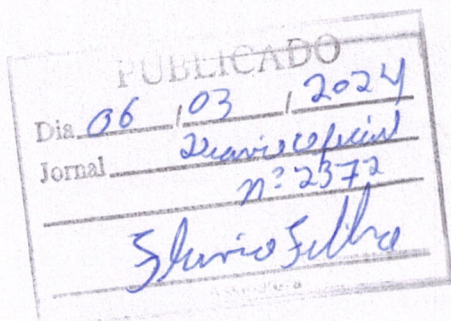 PUBLICADO
Dia 06 / 03 / 2024
Jornal Diario oficial
nº 2372